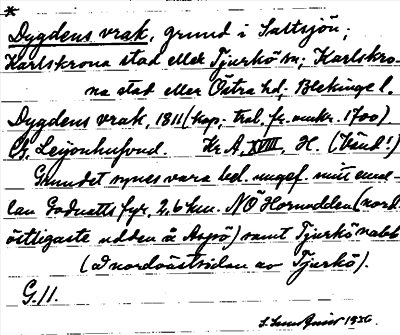 *
Dygdens vrak, grund i Saltsjön;
Karlskrona stad eller Tjurkö sn; Karlskro-
na stad eller Östra hd. Blekinge l.
Dygdens vrak, 1811 (kop. trol. fr. omkr. 1700)
G. Leijonhufvud. Kr. A, XVIII, H. (Bänd!)
Grundet synes vara bel. ungef. mitt emel-
lan Godnatts fyr, 2,6 km. NÖ Hornudden (nord-
östligaste udden å Aspö) samt Tjurkö nabb
(å nordvästsidan av Tjurkö).
G. 11.
1936